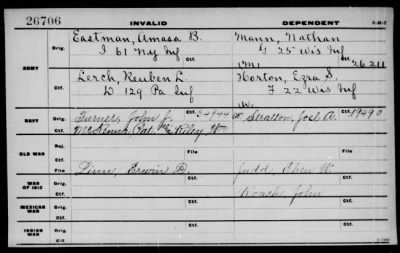 26706 INVALID DEPENDENT
ARMY
Orig. Eastman, Amasa B. Mann, Nathan
I 61 Ny Inf G 25 Wis Inf
Ctf. 26211
Orig. Lerch, Reuben L. Horton, Ezra S.
D 129 Pa Inf F 22 Wis Inf
Ctf.
NAVY
Orig. Turner, John J. 34944 Stratton, Josh A. 19490
Ctf. McKenna, Pat.
OLD WAR
Rej.
Ctf.
WAR OF 1812
Orig. Linn, Erwin B. Judd, W
Ctf. Roach, John
MEXICAN WAR
Orig.
Ctf.
INDIAN WAR
Orig.
Ctf.